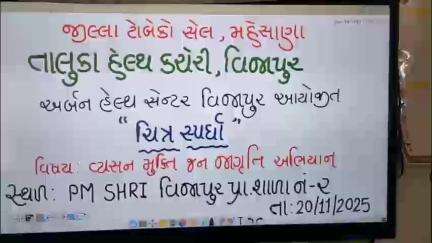 જીલ્લા ટોબેકો સેલ, મહેસાણા
તાલુકા હેલ્થ કચેરી, વિજાપુર
અર્બન હેલ્થ સેન્ટર વિજાપુર આયોજીત
"ચિત્ર સ્પર્ધા"
વિષય: વ્યસન મુક્તિ જન જાગૃતિ અભિયાન
સ્થળ: PM SHRI વિજાપુર પ્રા.શાળા નં-૨
તા:20/11/2025